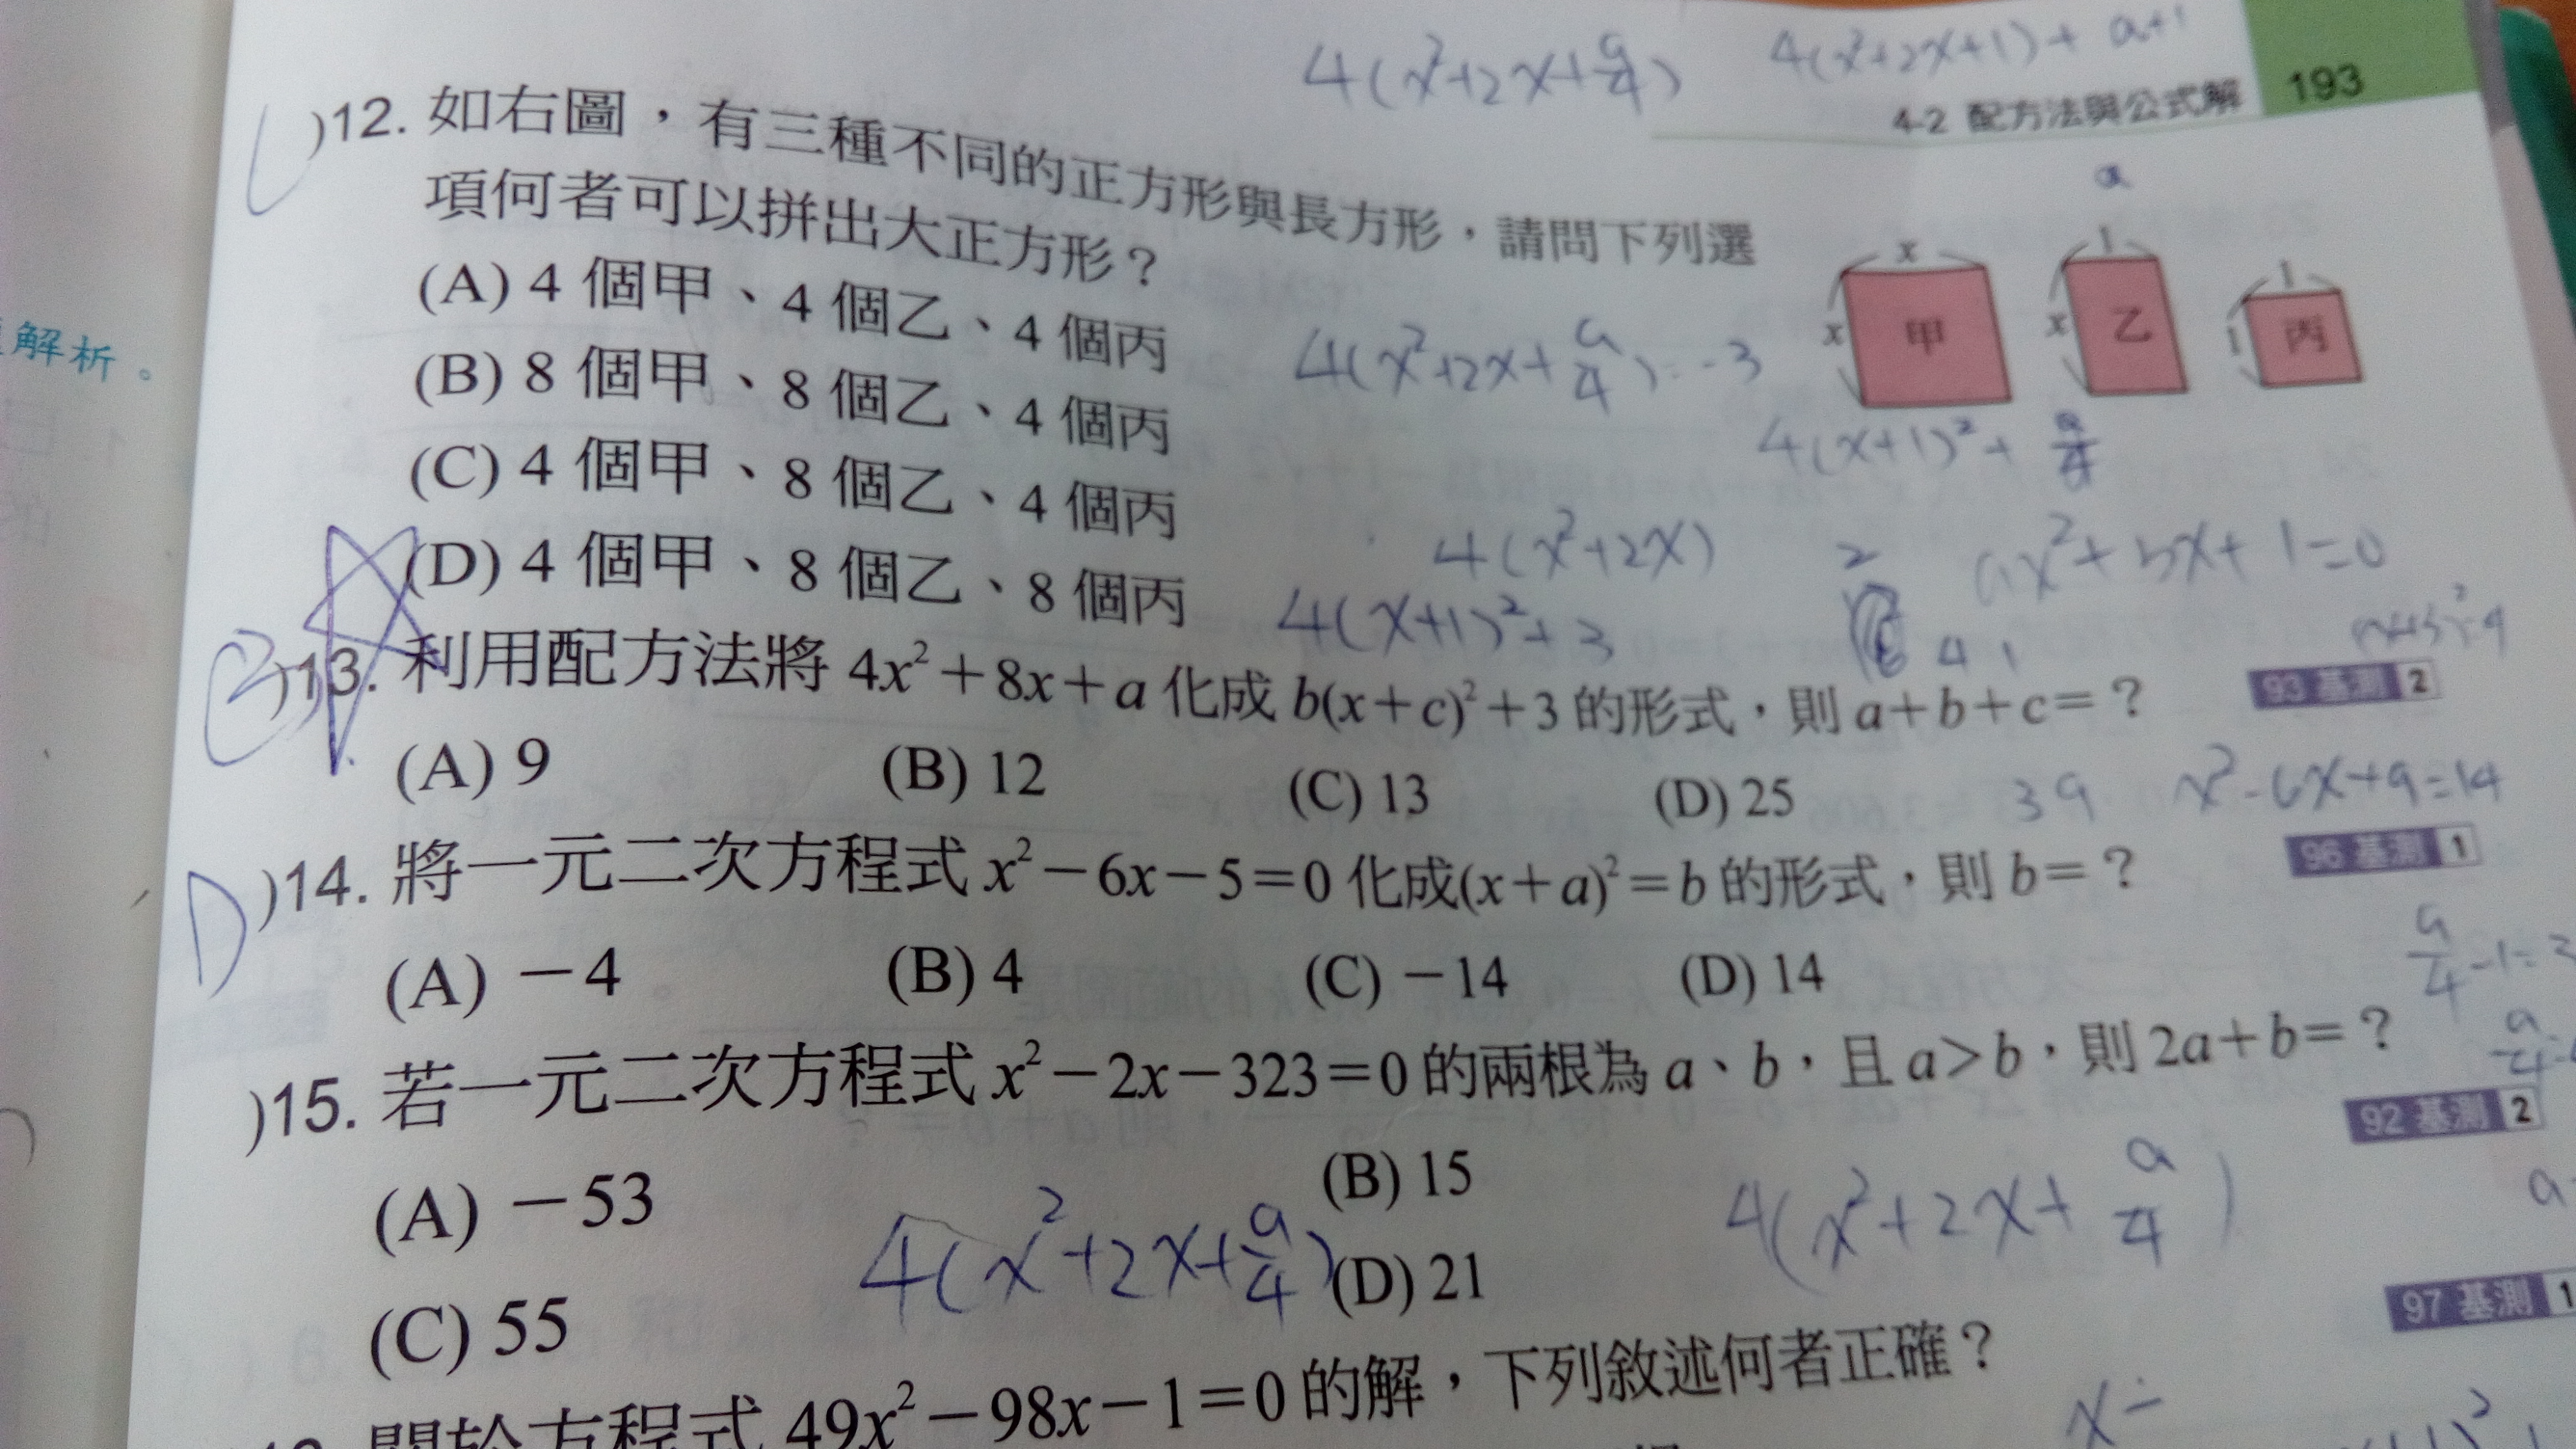 4(x²+2x+a/4) 4(x²+2x+1)+ a+1
4-2 配方法與公式解 193
)12. 如右圖，有三種不同的正方形與長方形，請問下列選
項何者可以拼出大正方形？
a
x x 甲 1 x 乙 1 1 丙
(A) 4 個甲、4 個乙、4 個丙
(B) 8 個甲、8 個乙、4 個丙
4(x²+2x+a/4)=-3
(C) 4 個甲、8 個乙、4 個丙
4(x+1)²+ a/4
(D) 4 個甲、8 個乙、8 個丙
4(x²+2x)
4(x+1)²+3
解析。
)13. 利用配方法將 4x²+8x+a 化成 b(x+c)²+3 的形式，則 a+b+c=？
93 基測 2
(A) 9 (B) 12 (C) 13 (D) 25
39 x²-6x+9=14
D )14. 將一元二次方程式 x²-6x-5=0 化成(x+a)²=b 的形式，則 b=？
96 基測 1
(A) -4 (B) 4 (C) -14 (D) 14
)15. 若一元二次方程式 x²-2x-323=0 的兩根為 a、b，且 a>b，則 2a+b=？
92 基測 2
(A) -53 (B) 15
(C) 55 (D) 21
4(x²+2x+a/4) 4(x²+2x+a/4)
97 基測 1
關於方程式 49x²-98x-1=0 的解，下列敘述何者正確？